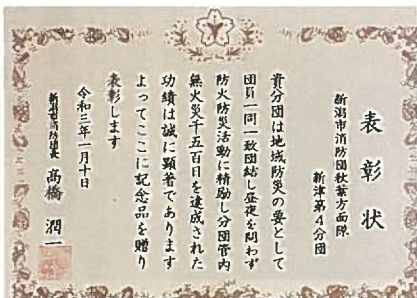 表彰状
新潟市消防団秋葉方面隊
新津第4分団
貴分団は地域防災の要として
団員一同一致団結し昼夜を問わず
防火防災活動に精励し分団管内
無火災千五百日を達成された
功績は誠に顕著であります
よってここに記念品を贈り
表彰します
令和三年一月十日
新潟市消防団長 髙橋 潤一